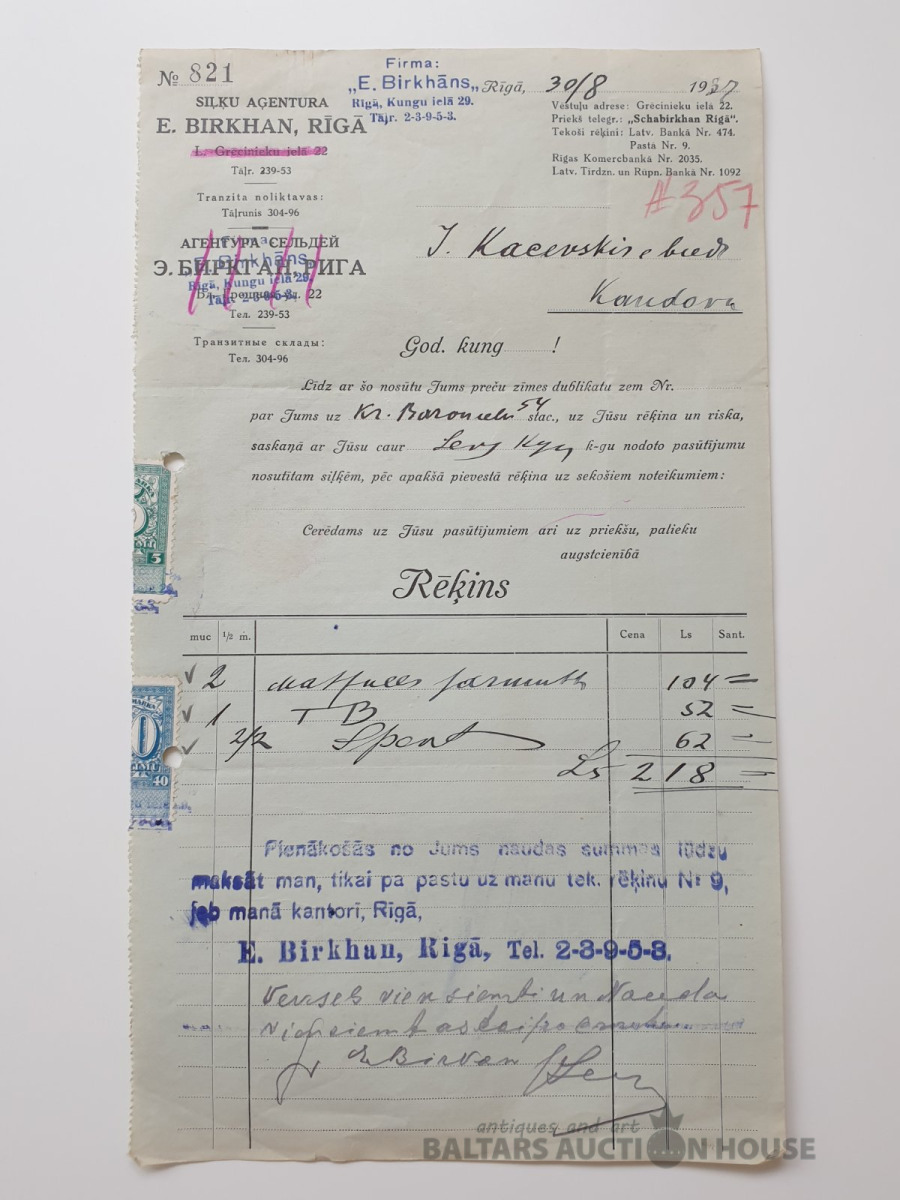 № 821
Firma:
„E. Birkhāns„
Rīgā, Kungu ielā 29.
Tālr. 2-3-9-5-3.
Rīgā, 30/8 1937
SIĻĶU AĢENTURA
E. BIRKHAN, RĪGĀ
L. Grēcinieku ielā 22
Tāļr. 239-53
Tranzita noliktavas:
Tāļrunis 304-96
АГЕНТУРА СЕЛЬДЕЙ
Э. БИРКГАН, РИГА
Firma:
E. Birkhāns
Rīgā, Kungu ielā 29.
Tālr. 2-3-9-5-3.
22
Тел. 239-53
Транзитные склады:
Тел. 304-96
Vēstuļu adrese: Grēcinieku ielā 22.
Priekš telegr.: „Schabirkhan Rīgā“.
Tekoši rēķini: Latv. Bankā Nr. 474.
Pastā Nr. 9.
Rīgas Komercbankā Nr. 2035.
Latv. Tirdzn. un Rūpn. Bankā Nr. 1092
#357
J. Kacevskis e biedr
Kandova
God. kung !
Līdz ar šo nosūtu Jums preču zīmes dublikatu zem Nr.
par Jums uz Kr. Baronielu 54 stac., uz Jūsu rēķina un riska,
saskaņā ar Jūsu caur k-gu nodoto pasūtījumu
nosutītam siļķēm, pēc apakšā pievestā rēķina uz sekošiem noteikumiem:
Cerēdams uz Jūsu pasūtījumiem arī uz priekšu, palieku
augstcienībā
Rēķins
muc ½ m. Cena Ls Sant.
2 Matfules jarmuth 104 =
1 T B 52 =
2/2 Spent 62 =
Ls 218 =
5
40
Pienākošās no Jums naudas summas lūdzu
maksāt man, tikai pa pastu uz manu tek. rēķinu Nr 9,
jeb manā kantorī, Rīgā,
E. Birkhan, Rīgā, Tel. 2-3-9-5-3.
un Nauda
antiques and art
BALTARS AUCTION HOUSE